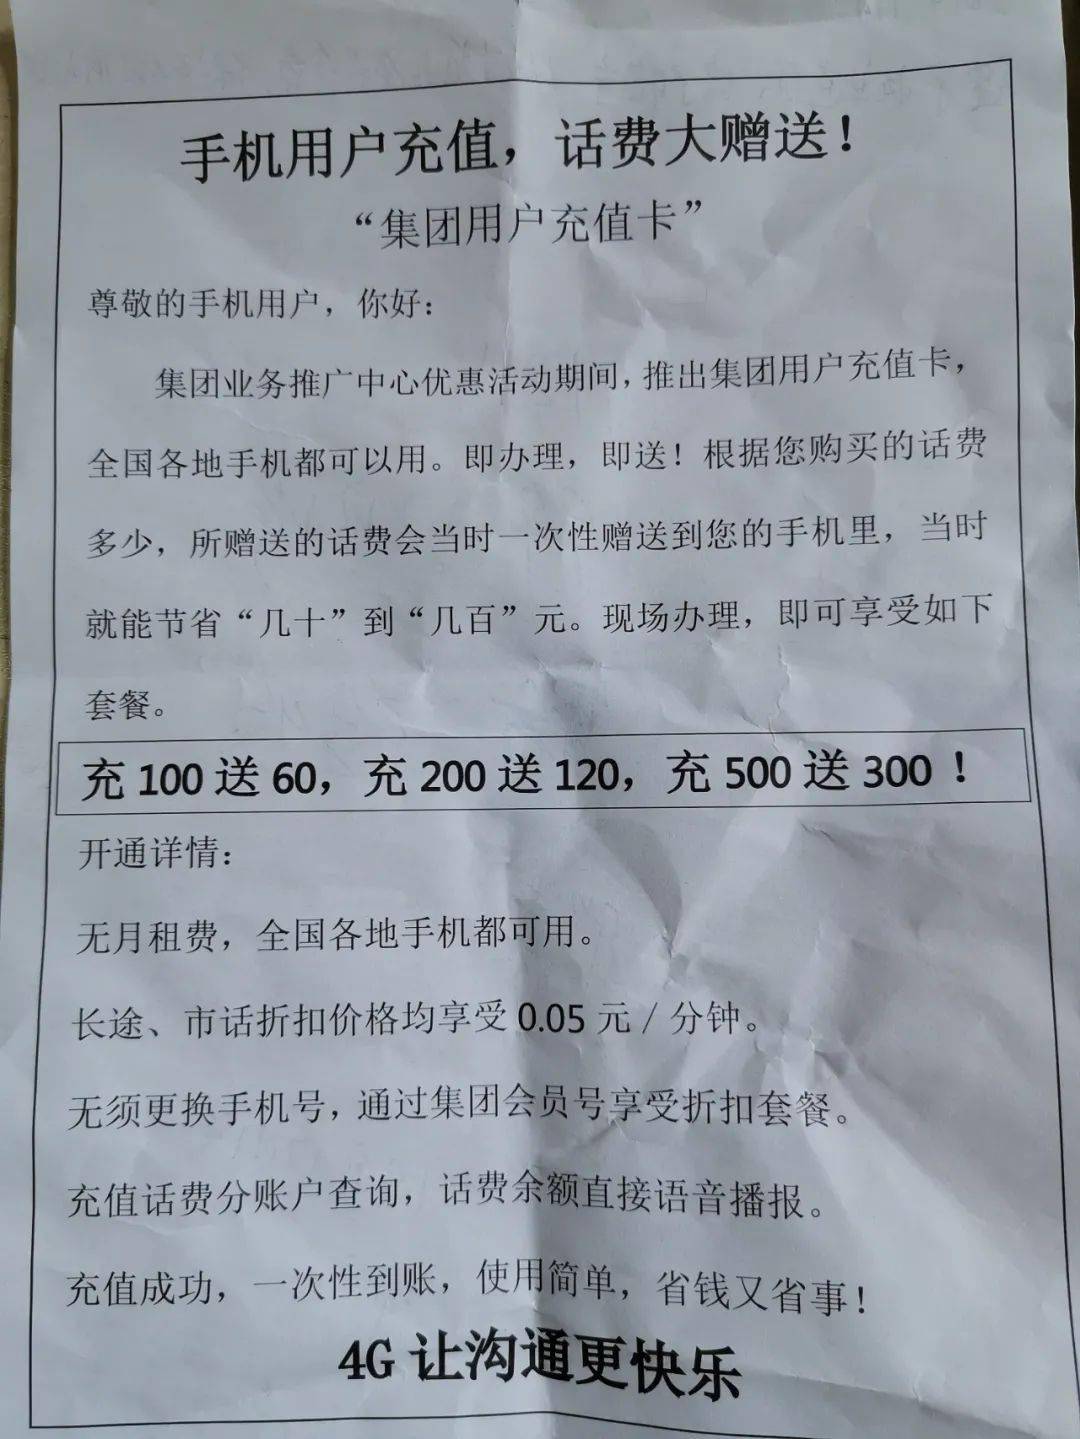 手机用户充值，话费大赠送！
“集团用户充值卡”
尊敬的手机用户，你好：
集团业务推广中心优惠活动期间，推出集团用户充值卡，
全国各地手机都可以用。即办理，即送！根据您购买的话费
多少，所赠送的话费会当时一次性赠送到您的手机里，当时
就能节省“几十”到“几百”元。现场办理，即可享受如下
套餐。
充 100 送 60，充 200 送 120，充 500 送 300！
开通详情：
无月租费，全国各地手机都可用。
长途、市话折扣价格均享受 0.05 元／分钟。
无须更换手机号，通过集团会员号享受折扣套餐。
充值话费分账户查询，话费余额直接语音播报。
充值成功，一次性到账，使用简单，省钱又省事！
4G 让沟通更快乐